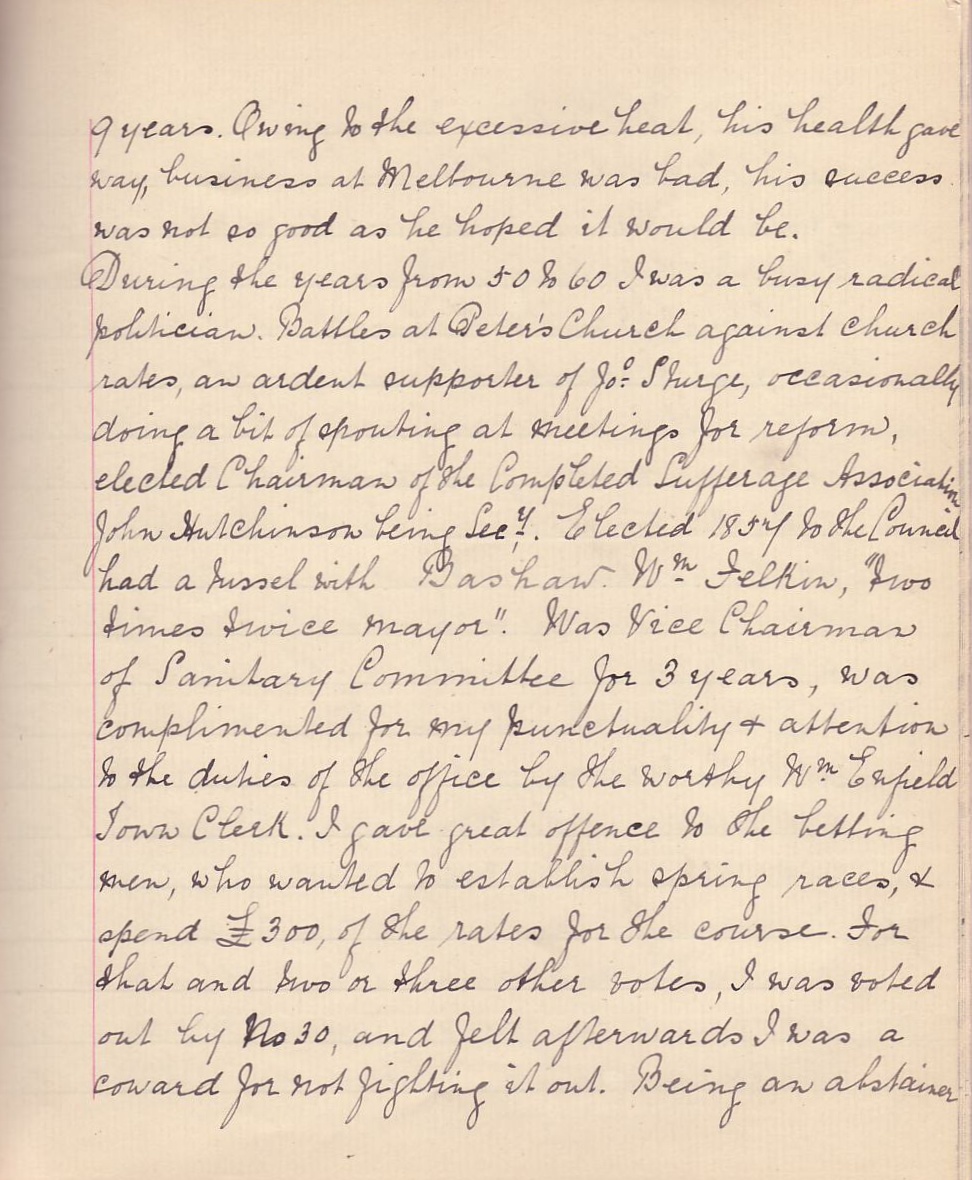 9 years. Owing to the excessive heat, his health gave
way, business at Melbourne was bad, his success
was not so good as he hoped it would be.
During the years from 50 to 60 I was a busy radical
politician. Battles at Peter's Church against church
rates, an ardent supporter of Jos. Sturge, occasionally
doing a bit of spouting at meetings for reform,
elected Chairman of the Completed Sufferage Association
John Hutchinson being Secy. Elected 1857 to the Council
had a tussel with Bashaw. Wm Felkin, "two
times twice mayor". Was Vice Chairman
of Sanitary Committee for 3 years, was
complimented for my punctuality & attention
to the duties of the office by the worthy Wm Enfield
Town Clerk. I gave great offence to the betting
men, who wanted to establish spring races, &
spend £300, of the rates for the course. For
that and two or three other votes, I was voted
out by No 30, and felt afterwards I was a
coward for not fighting it out. Being an abstainer